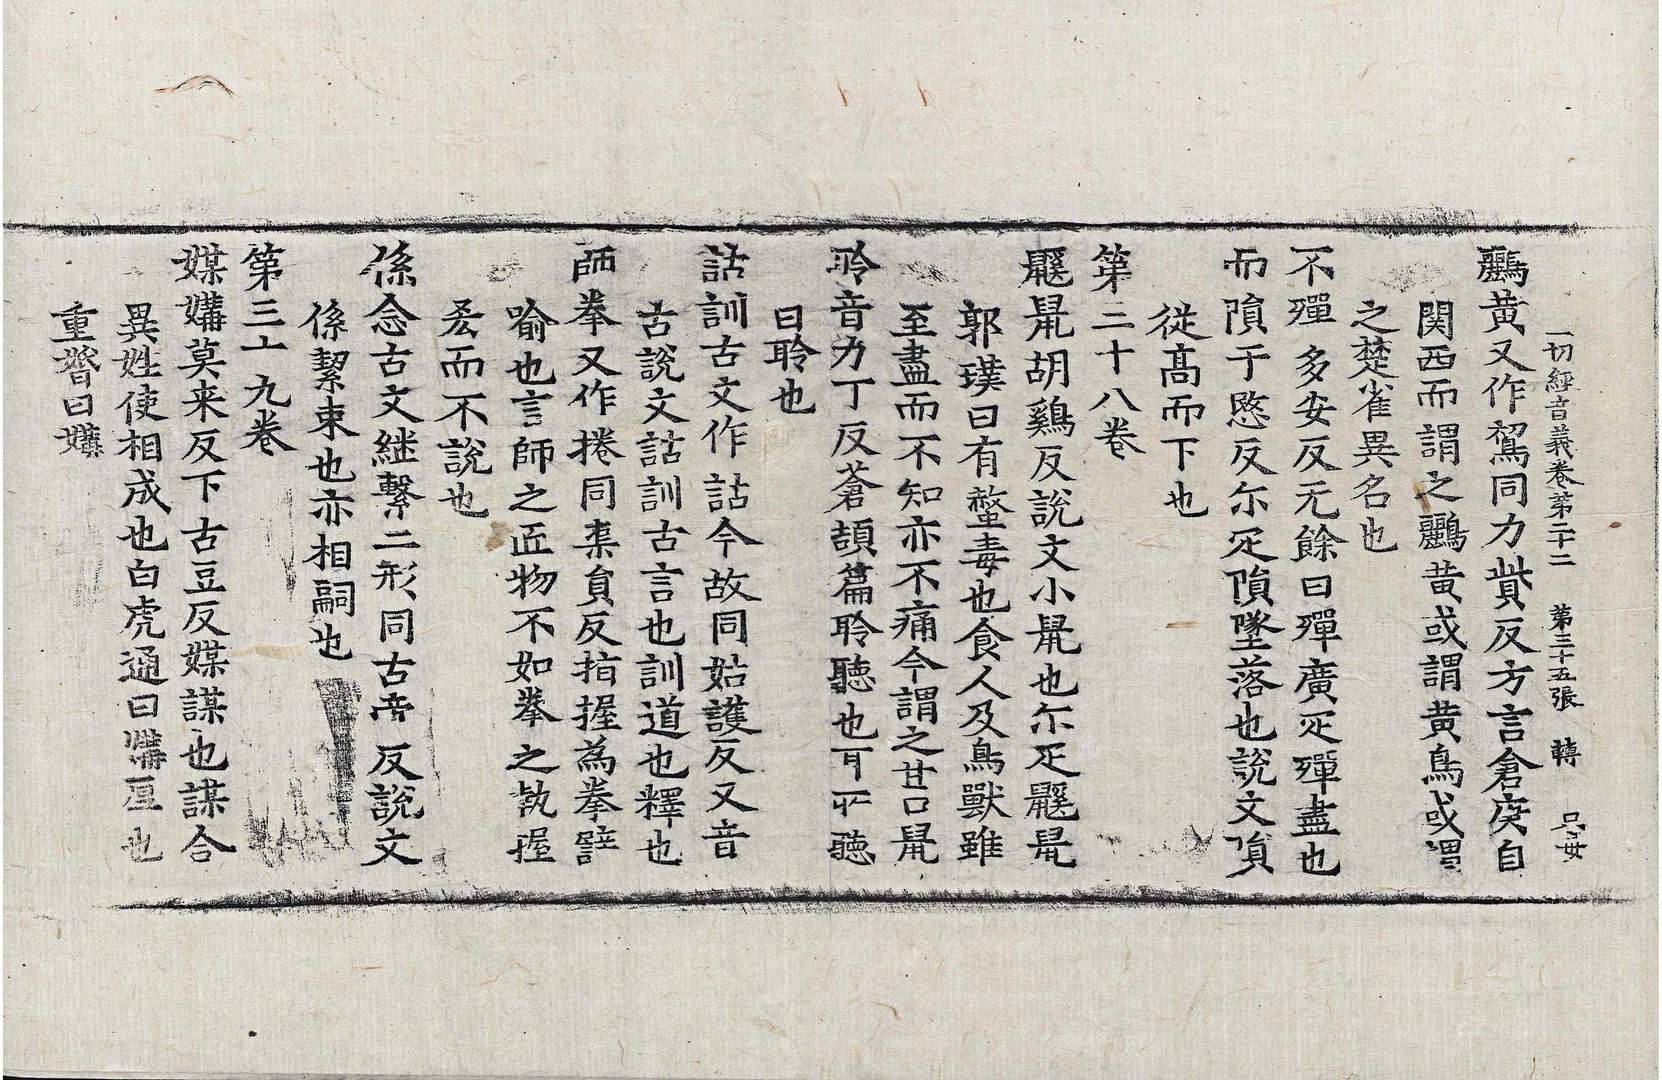 一切經音義卷第二十二 第三十五張 轉
鸝黄又作鴷同力貲反方言倉庚自
関西而謂之鸝黄或謂黄鳥或謂
之楚雀異名也
不殫 多安反无餘曰殫廣疋殫盡也
而隕于愍反尓疋隕墜落也說文隕
從高而下也
第二十八卷
鼷鼠胡鷄反說文小鼠也尓疋鼷鼠
郭璞曰有螫毒也食人及鳥獸雖
至盡而不知亦不痛今謂之甘口鼠
聆音力丁反蒼頡篇聆聽也耳所聽
曰聆也
詁訓古文作詁今故同姑護反又音
古說文詁訓古言也訓道也釋也
師拳又作捲同渠負反指握為拳譬
喻也言師之匠物不如拳之執握
丟而不說也
係念古文継繫二形同古帝反說文
係絜束也亦相嗣也
第三十九卷
媒媾莫来反下古豆反媒謀也謀合
異姓使相成也白虎通曰媾厚也
重婚曰媾